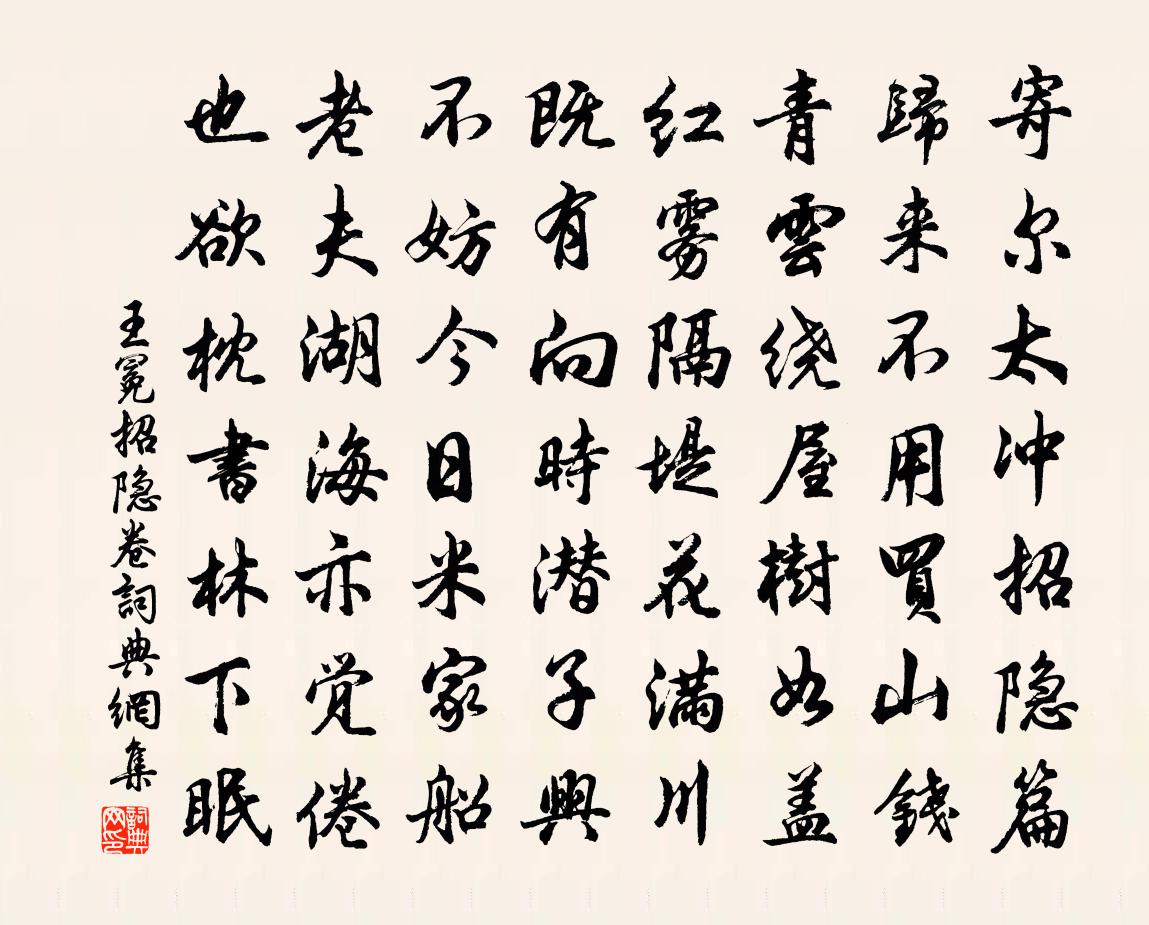 寄尔太冲招隐篇
歸来不用買山錢
青雲绕屋樹如盖
红雾隔堤花满川
既有向時潜子興
不妨今日米家船
老夫湖海亦觉倦
也欲枕書林下眠
王冕招隐卷詞典網集
詞典网印